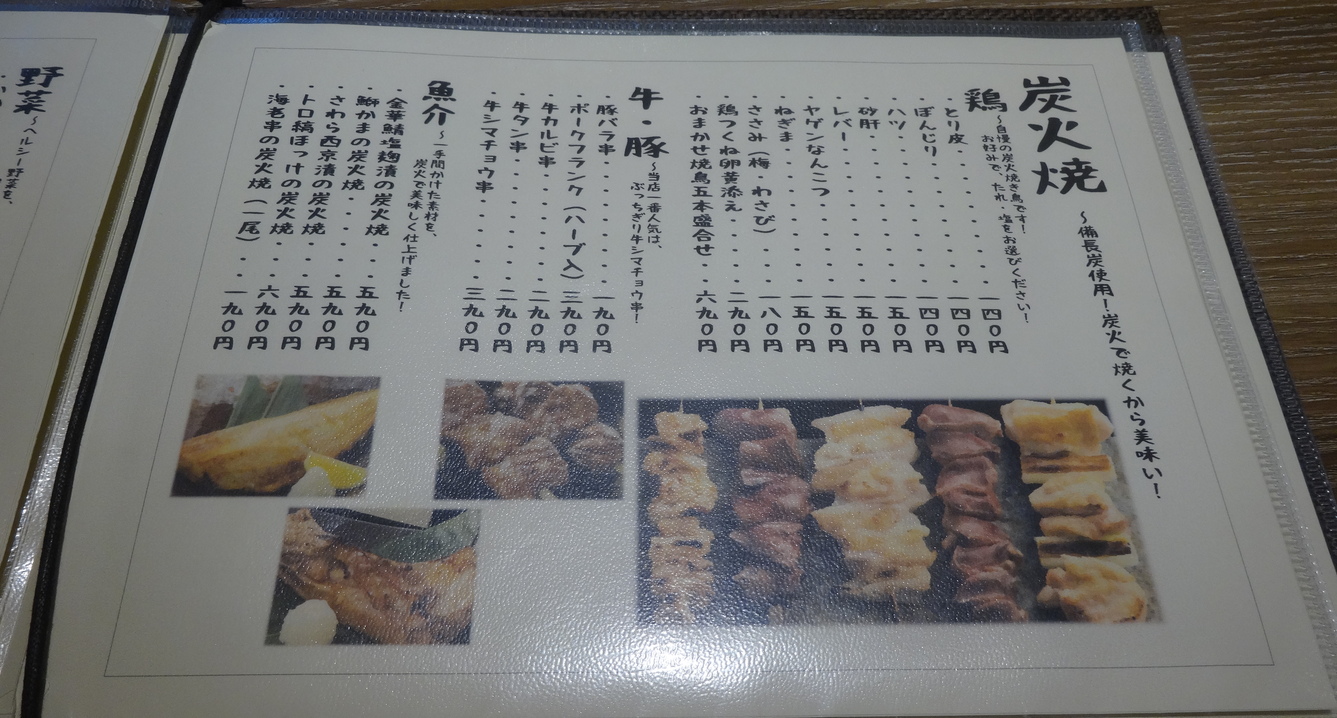 炭火焼 ～備長炭使用！炭火で焼くから美味い！
鶏 ～自慢の炭火焼き鳥です！
お好みで、たれ、塩をお選びください！
・とり皮・・・・・一四〇円
・ぼんじり・・・・・一四〇円
・ハツ・・・・・・一四〇円
・砂肝・・・・・・一五〇円
・レバー・・・・・・一五〇円
・ヤゲンなんこつ・・・・一五〇円
・ねぎま・・・・・・一五〇円
・ささみ（梅・わさび）・・一八〇円
・鶏つくね卵黄添え・・・二九〇円
・おまかせ焼鳥五本盛合せ・・六九〇円
牛・豚 ～当店一番人気は、
ぶっちぎり牛シマチョウ串！
・豚バラ串・・・・・一九〇円
・ポークフランク（ハーブ入）三九〇円
・牛カルビ串・・・・・二九〇円
・牛タン串・・・・・・二九〇円
・牛シマチョウ串・・・・三九〇円
魚介 ～一手間かけた素材を、
炭火で美味しく仕上げました！
・金華鯖塩麹漬の炭火焼・・五九〇円
・鰤かまの炭火焼・・・・五九〇円
・さわら西京漬の炭火焼・・五九〇円
・トロ縞ほっけの炭火焼・・六九〇円
・海老串の炭火焼（一尾）・・一九〇円
野菜 ～ヘルシー野菜を、